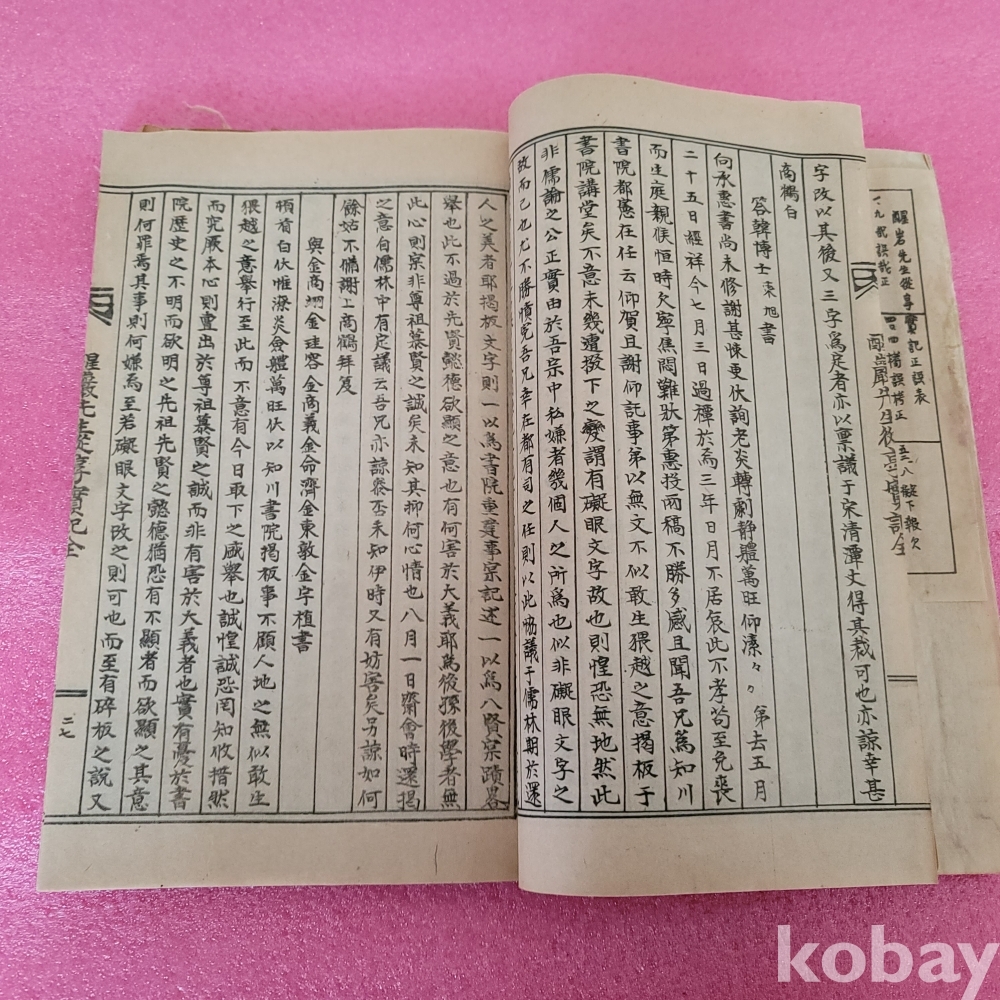 字改以其後又三字爲定者亦以稟議于宋清潭丈得其裁可也亦諒幸甚
商鶴白
答韓博士東旭書
向承惠書尚未修謝甚悚更伏詢老炎轉劇静軆萬旺仰溸々々第去五月
二十五日經祥今七月三日過禫於焉三年日月不居哀此不孝苟至免喪
而生庭親候恒時欠寧焦悶難狀第惠投兩稿不勝多感且聞吾兄爲知川
書院都憲在任云仰賀且謝仰託事弟以無文不似敢生猥越之意揭板于
書院講堂矣不意未幾遭撥下之變謂有礙眼文字故也則惶恐無地然此
非儒論之公正實由於吾宗中私嫌者幾個人之所爲也似非礙眼文字之
故而已也尤不勝憤菀吾兄幸在都有司之任則以此協議于儒林期於還
人之美者耶揭板文字則一以爲書院重建事宗記述一以爲八賢宗蹟畧
舉也此不過於先賢懿德欲顯之意也有何害於大義耶爲後孫後學者無
此心則宗非尊祖慕賢之誠矣未知其抑何心情也八月一日齋會時還揭
之意自儒林中有定議云吾兄亦諒燊否未知伊時又有妨害矣另諒如何
餘姑不備謝上商鶴拜复
與金商翊金珪容金商義金命濟金東敦金字植書
頓首白伏惟潦炎僉軆萬旺伏以知川書院揭板事不顧人地之無似敢生
猥越之意舉行至此而不意有今日取下之感舉也誠惶誠恐罔知攸措然
而究厥本心則亶出於尊祖慕賢之誠而非有害於大義者也實有憂於書
院歷史之不明而欲明之先祖先賢之懿德猶恐有不顯者而欲顯之其意
則何罪焉其事則何嫌焉至若礙眼文字改之則可也而至有碎板之說又
醒巖先生從享實記全
二七
醒岩先生從享實記正誤表
kobay